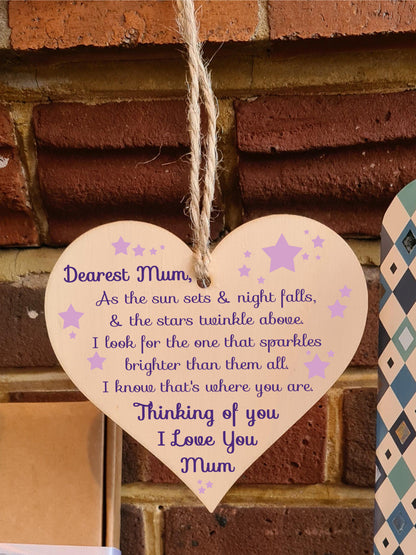 Dearest Mum,
As the sun sets & night falls,
& the stars twinkle above.
I look for the one that sparkles
brighter than them all.
I know that's where you are.
Thinking of you
I Love You
Mum